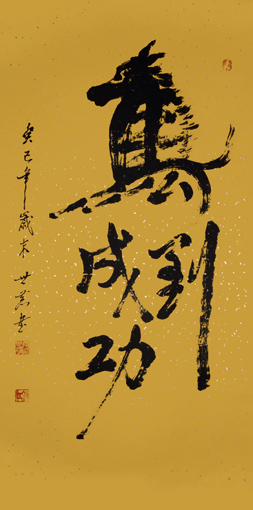 馬到
成功
癸巳年歲末 世